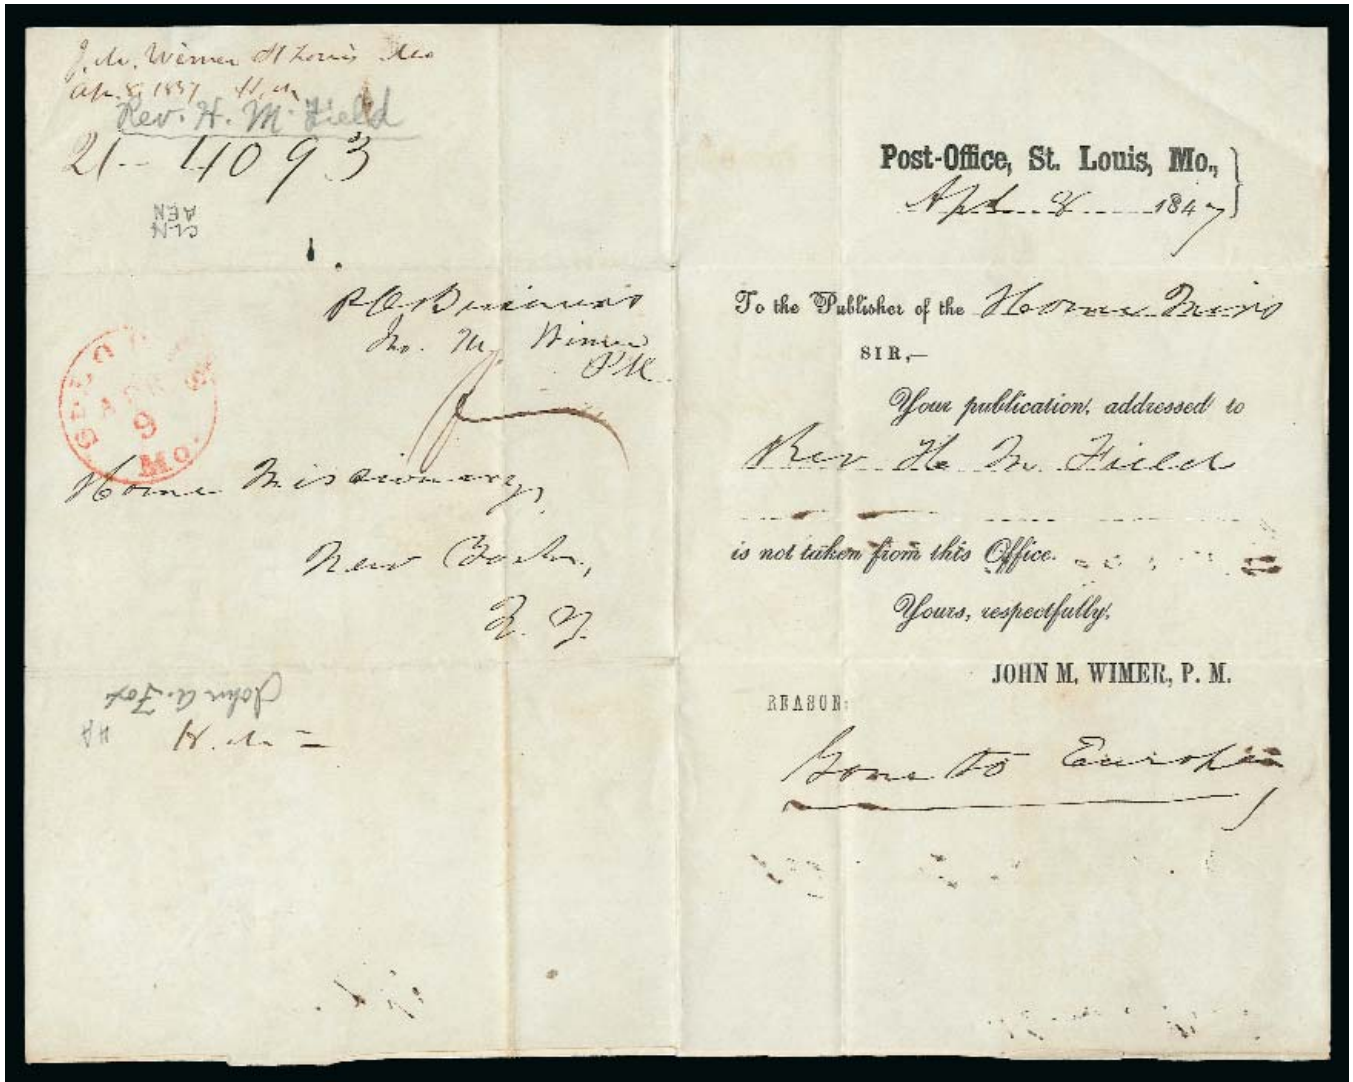 J. M. Wimer St Louis Mo
Ap. 8, 1847 H. M
Rev. H. M. Field
21 - 4093
CLN
AEN
P O Business
Jno. M. Wimer
P M
ST. LOUIS
APR
9
MO.
Home Missionary,
New York,
N. Y.
John A. Fox
HA
H. M
Post-Office, St. Louis, Mo.,
Apl 8 1847
To the Publisher of the Home Miss
SIR,—
Your publication, addressed to
Rev H. M. Field
is not taken from this Office.
Yours, respectfully,
JOHN M. WIMER, P. M.
REASON:
Gone to Europe